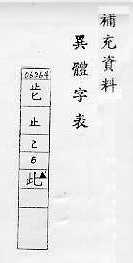 補充資料
異體字表
06264
止
2
6
此